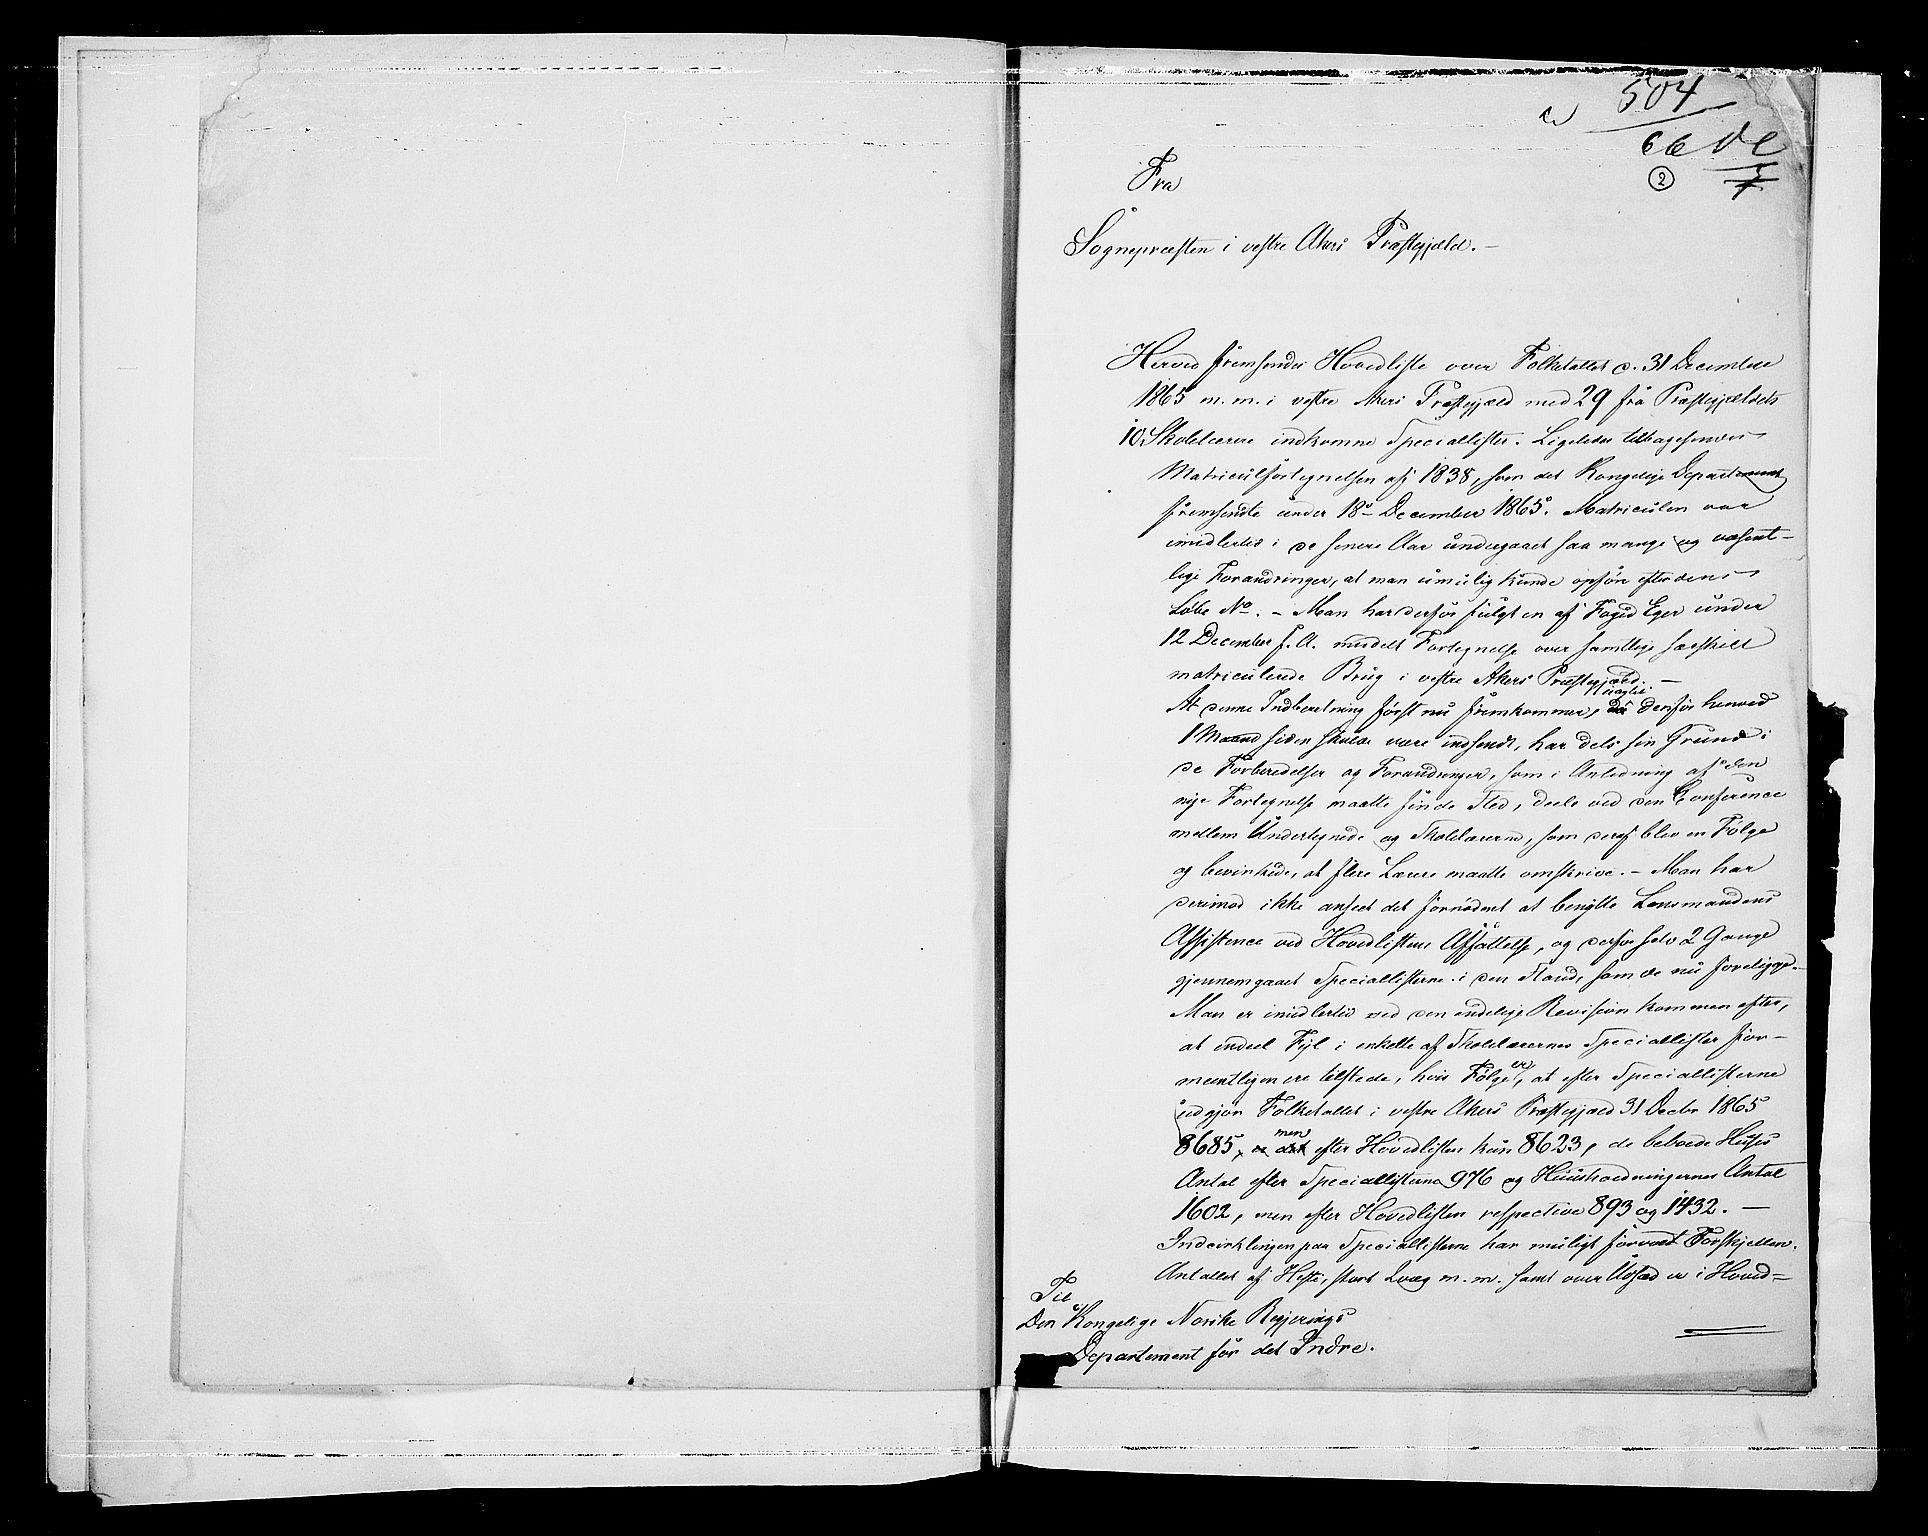 504
66
2
7
Fra
Sognepræsten i vestre Akers Præstegjæld. –
Herved fremsendes Hovedliste over Folketallet d. 31 December
1865 m. m. i vestre Akers Præstegjæld med 29 fra Præstegjældets
10 Skolelærere indkomne Speciallister. Ligeledes tilbagesendes
Matriculfortegnelsen af 1838, som det Kongelige Departement
fremsendte under 18de December 1865. Matriculen var
imidlertid i de senere Aar undergaaet saa mange og væsent-
lige Forandringer, at man umulig kunde opføre efter dens
Løbe No. – Man har derfor fulgt en af Foged Eger under
12 December f. A. meddelt Fortegnelse over samtlige særskilt
matriculerede Brug i vestre Akers Præstegjæld. –
At denne Indberetning først nu fremkommer, uagtet den før henved
1 Maaned siden skulde være indsendt, har dels sin Grund i
de Forberedelser og Forandringer, som i Anledning af den
nye Fortegnelse maatte finde Sted, deels ved den Conference
mellem Undertegnede og Skolelærerne, som deraf blev en Følge
og bevirkede, at flere Lærere maatte omskrive. – Man har
derimod ikke anseet det fornødent at benytte Lensmandens
Assistence ved Hovedlistens Affattelse, og derfor selv 2 Gange
gjennemgaaet Speciallisterne i den Stand, som de nu foreligge. –
Man er imidlertid ved den endelige Revision kommen efter,
at endeel Fejl i enkelte af Skolelærernes Speciallister for-
meentligen ere tilstede, hvis Følge er, at efter Speciallisterne
udgjør Folketallet i vestre Akers Præstegjæld 31 Decbr 1865
8685, men efter Hovedlisten kun 8623, de beboede Huses
Antal efter Speciallisterne 976 og Huusholdningernes Antal
1602, men efter Hovedlisten respective 893 og 1432. –
Indcirklingen paa Speciallisterne har muligt forvoldt Forskjellen.
Antallet af Heste, stort Qvæg m. m. samt over Udsæd er i Hoved-
Til
Den Kongelige Norske Regjerings
Departement for det Indre.